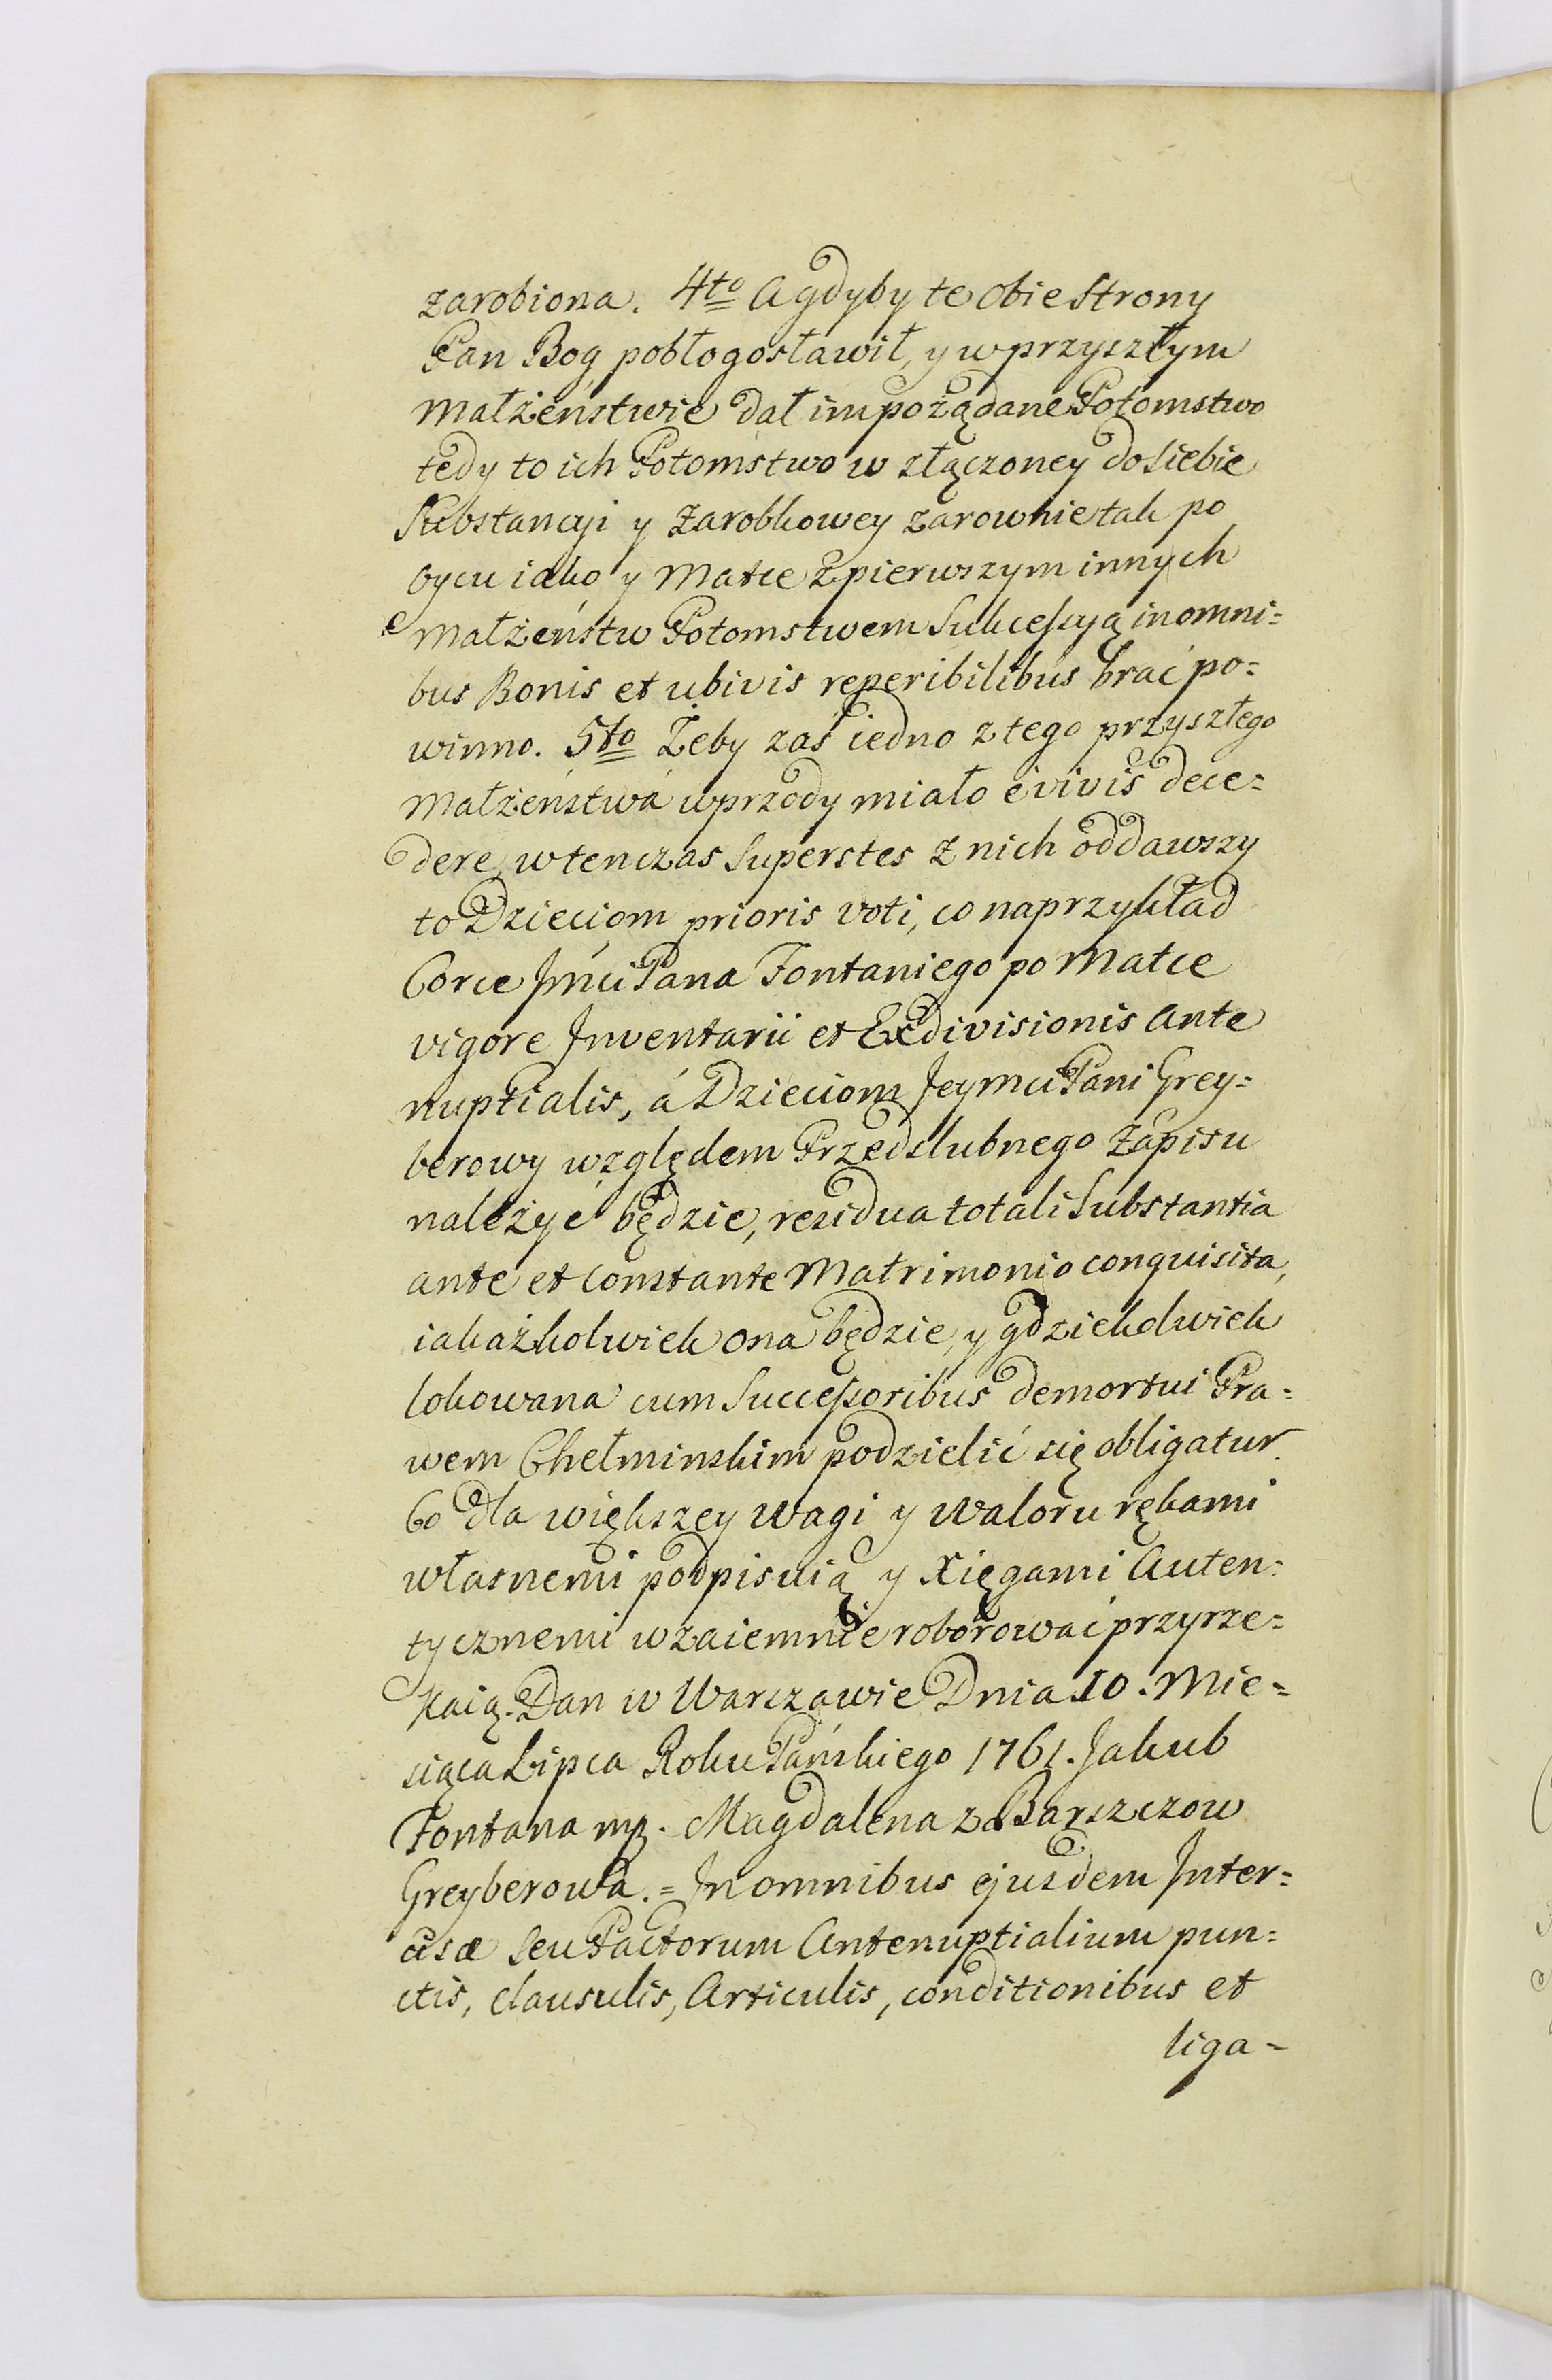 zarobiona. 4to A gdyby te obie Strony
Pan Bog pobłogosławił, y w przyszłym
Małżeństwie dał im pożądane Potomstwo
tedy to ich Potomstwo w złączoney do siebie
Substancyi y Zarobkowey zarownie tak po
oycu iako y Matce z pierwszym innych
Małżeństw Potomstwem Sukcessyą in omni=
bus Bonis et ubivis reperibilibus brać po=
winno. 5to Żeby zaś iedno z tego przyszłego
Małżeństwá wprzody miało é vivis dece=
dere, wtenczas Superstes z nich oddawszy
to Dzieciom prioris voti, co naprzykład
Corce Jmci Pana Fontaniego po Matce
vigore Inventarii et Exdivisionis Ante
nuptialis, á Dzieciom Jeymci Pani Grey=
berowy względem Przedslubnego Zápisu
należyć będzie, residua totali Substantia
ante et Constante Matrimonio conquisita,
iakażkolwiek ona będzie, y gdziekolwiek
lokowana cum Successoribus demortui Pra=
wem Chełminskim podzielić się obligatur.
Co dla większey wagi y waloru rękami
własnemi podpisuią y Xięgami Auten=
tycznemi wzaiemnie roborować przyrze=
kaią. Dan w Warszawie Dnia 10. Mie=
siąca Lipca Roku Pańskiego 1761. Jakub
Fontana mp. Magdalena z Barszczow
Greyberowa. = In omnibus ejusdem Inter=
cisæ seu Pactorum Antenuptialium pun=
ctis, clausulis, Articulis, conditionibus et
liga=